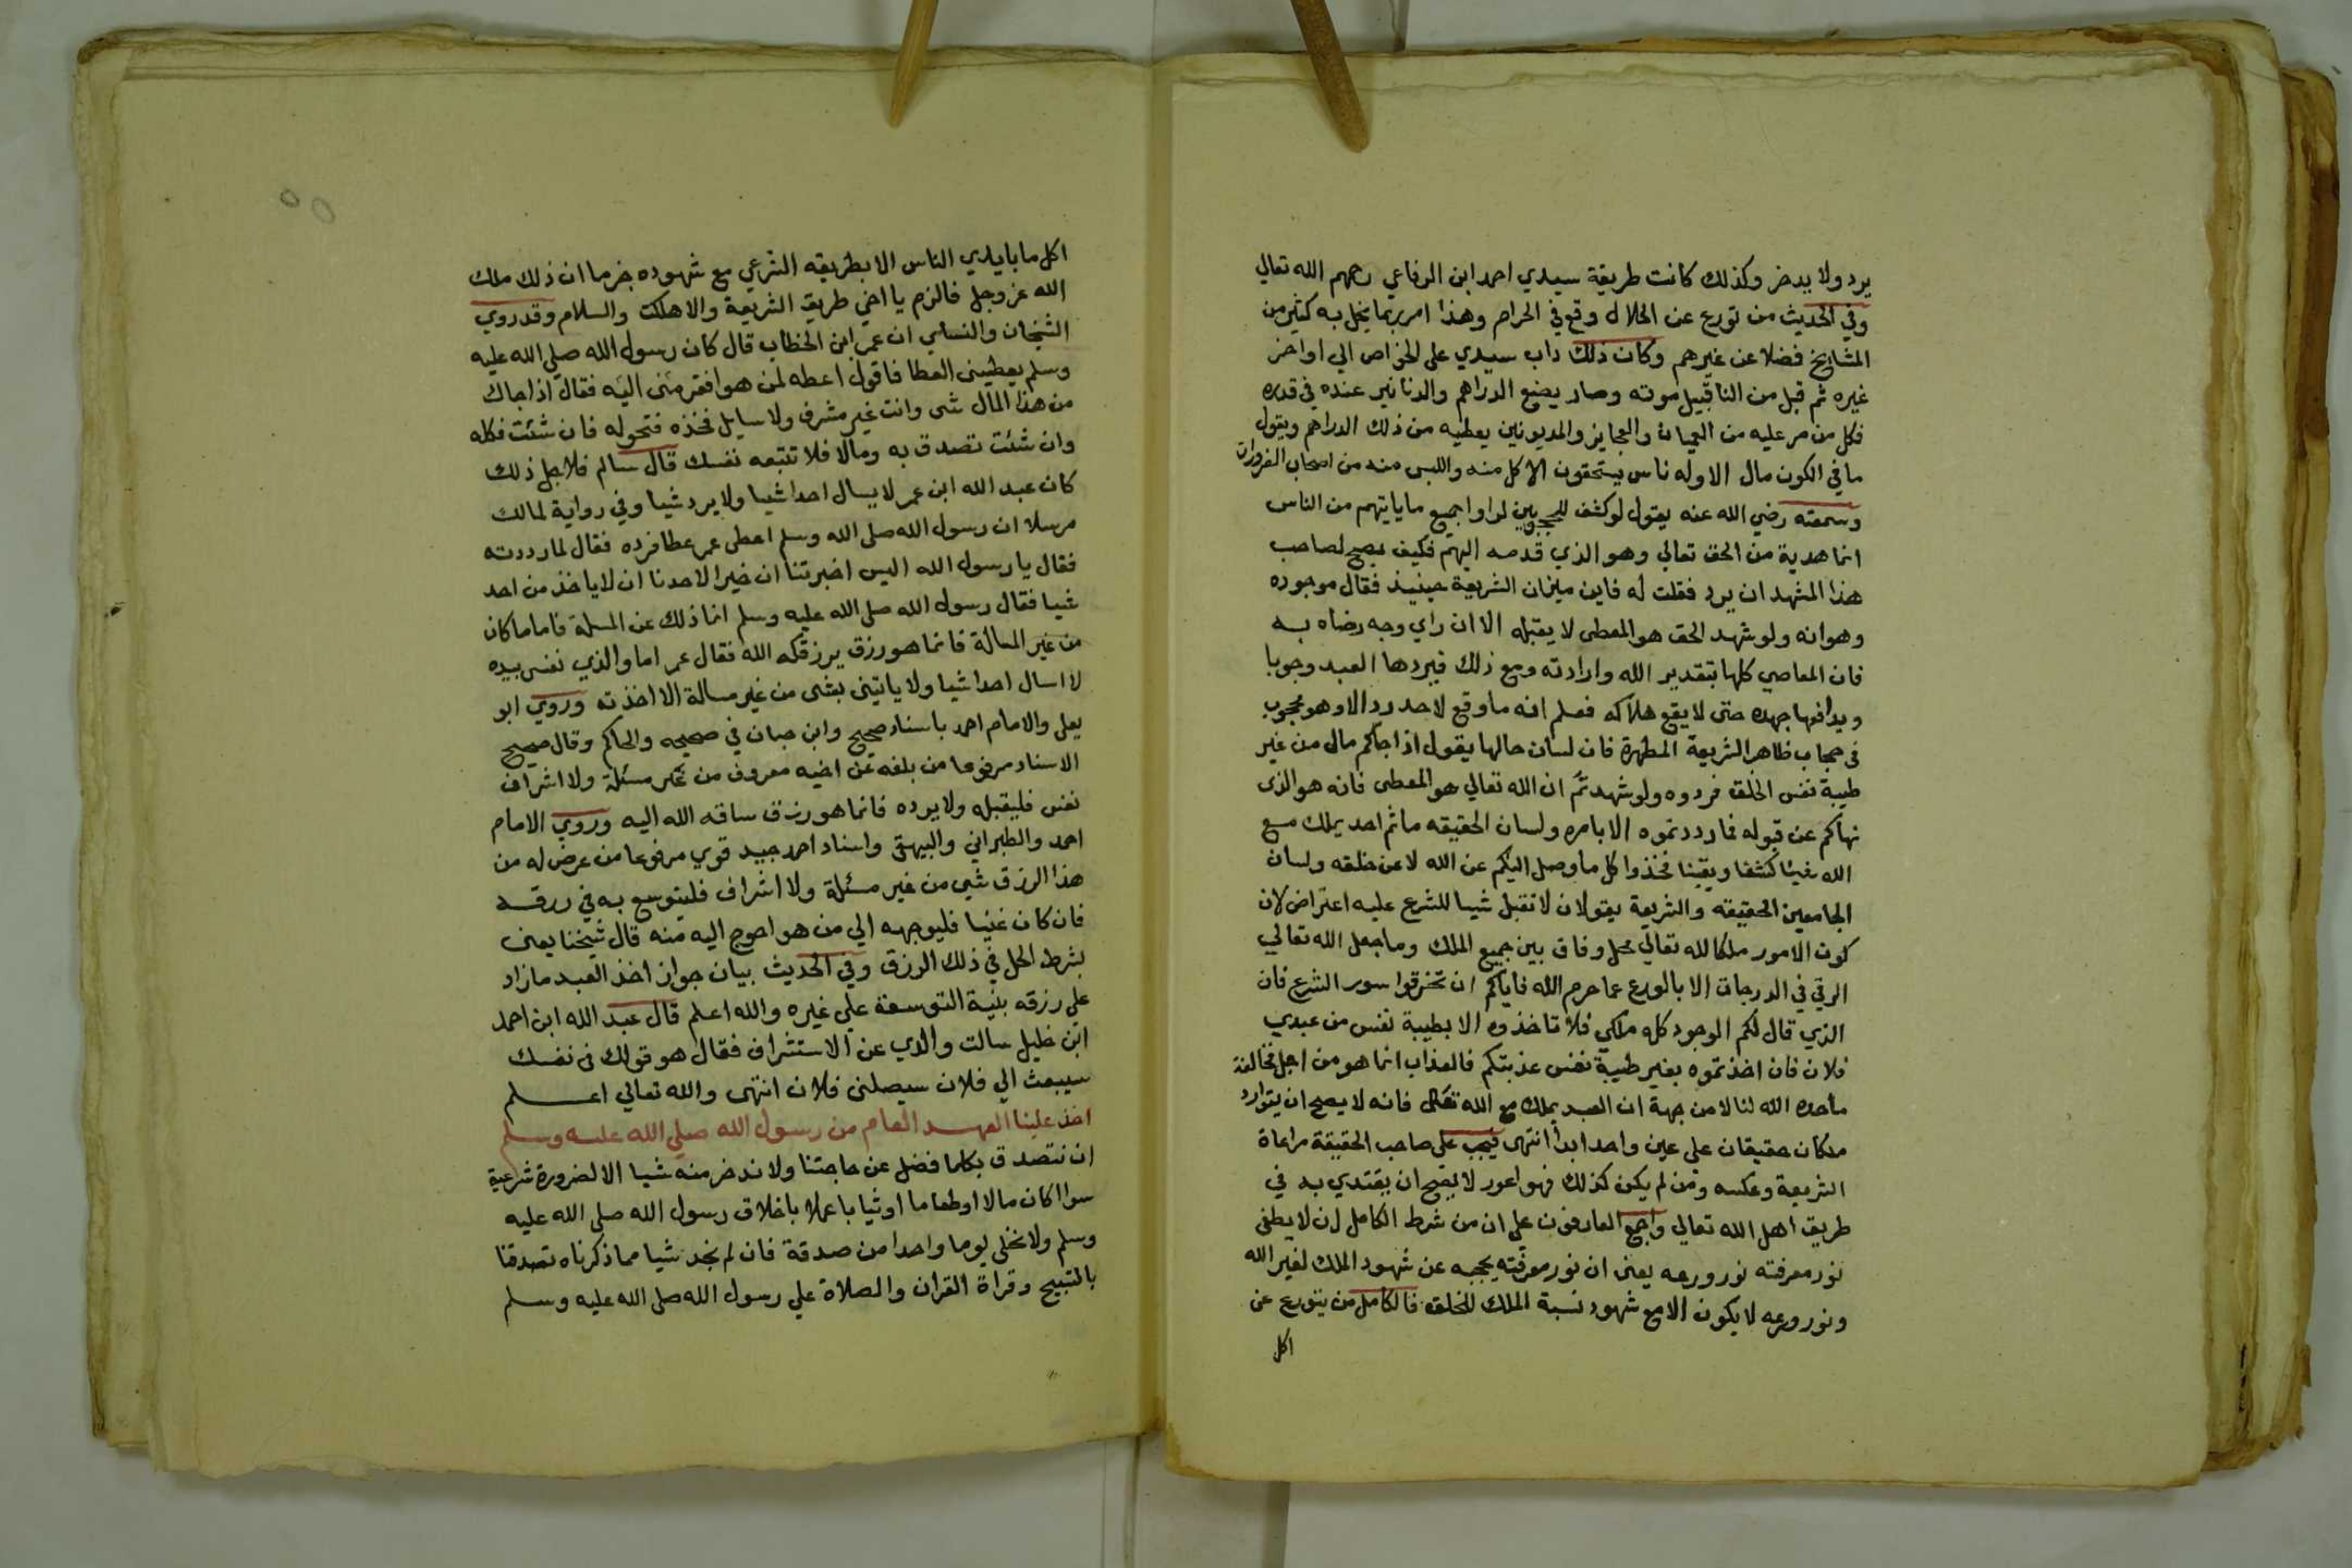 يرد ولا يدخر وكذلك كانت طريقة سيدي احمد ابن الرفاعي رحمهم الله تعالي
وفي الحديث من تورع عن الحلال وقع في الحرام وهذا امر ربما يخل به كثير من
المشايخ فضلا عن غيرهم وكان ذلك داب سيدي علي الخواص الي اواخر
غيره ثم قبل من الناس قبيل موته وصار يضع الدراهم والدنانير عنده في قدره
فكل من مر عليه من العميان والعجايز والمديونين يعطيه من ذلك الدراهم ويقول
ما في الكون مال الا وله ناس يستحقون الاكل منه واللبس منه من اصحاب الضرورات
وسمعته رضي الله عنه يقول لو كشف للمحجوبين لراوا جميع ما ياتيهم من الناس
انما هدية من الحق تعالي وهو الذي قدمه اليهم فكيف يصح لصاحب
هذا المشهد ان يرد فقلت له فاين ميزان الشريعة حينيذ فقال موجوده
وهو انه ولو شهد الحق هو المعطى لا يقبله الا ان راي وجه رضاه به
فان المعاصي كلها بتقدير الله وارادته ومع ذلك فيردها العبد وجوبا
ويدافعها جهده حتى لا يقع هلاكه فعلم انه ما وقع لاحد رد الا وهو محجوب
في حجاب ظاهر الشريعة المطهرة فان لسان حالها يقول اذا جاكم مال من غير
طيبة نفس الخلق فردوه ولو شهدتم ان الله تعالي هو المعطى فانه هو الذى
نهاكم عن قبوله فما رددتموه الا بامره ولسان الحقيقه ما ثم احد يملك مع
الله شيئا كشفا ويقينا فخذوا كل ما وصل اليكم عن الله لا عن خلقه ولسان
الجامعين الحقيقه والشريعة يقولان لا تقبل شيا للشرع عليه اعتراض لان
كون الامور ملكا لله تعالي محل وفاق بين جميع الملك وما جعل الله تعالي
الرقي في الدرجات الا بالورع عما حرم الله فاياكم ان تخرقوا سور الشرع فان
الذي قال لكم الوجود كله ملكي فلا تاخذوه الا بطيبة نفس من عبدي
فلان فان اخذتموه بغير طيبة نفس عذبتكم فالعذاب انما هو من اجل مخالفة
ما حده الله لنا لا من جهة ان العبد يملك مع الله تعالى فانه لا يصح ان يتوارد
ملكان حقيقان علي عين واحد ابدا انتهى فيجب على صاحب الحقيقة مراعاة
الشريعة وعكسه ومن لم يكن كذلك فهو اعور لا يصح ان يقتدي به في
طريق اهل الله تعالي واجمع العارفون علي ان من شرط الكامل ان لا يطفى
نور معرفته نور ورعه يعنى ان نور معرفته يحجبه عن شهود الملك لغير الله
ونور ورعه لا يكون الا مع شهود نسبة الملك للخلق فالكامل من يتورع عن
اكل
اكل ما بايدي الناس الا بطريقه الشرعي مع شهوده جزما ان ذلك ملك
الله عز وجل فالزم يا اخي طريق الشريعة والا هلكت والسلام وقد روي
الشيخان والنساي ان عمر ابن الخطاب قال كان رسول الله صلي الله عليه
وسلم يعطينى العطا فاقول اعطه لمن هو افقر منى اليه فقال اذا جاك
من هذا المال شى وانت غير مشرف ولا سايل فخذه فتحوله فان شئت فكله
وان شئت تصدق به ومالا فلا تتبعه نفسك قال سالم فلاجل ذلك
كان عبد الله ابن عمر لا يسال احدا شيا ولا يرد شيا وفي رواية لمالك
مرسلا ان رسول الله صلى الله وسلم اعطى عمر عطا فرده فقال لما رددته
فقال يا رسول الله اليس اخبرتنا ان خيرا لاحدنا ان لا ياخذ من احد
شيا فقال رسول الله صلى الله عليه وسلم انما ذلك عن المسلة فاما ما كان
من غير المسالة فانما هو رزق يرزقكه الله فقال عمر اما والذي نفسى بيده
لا اسال احدا شيا ولا ياتينى بشى من غير مسالة الا اخذته وروي ابو
يعلى والامام احمد باسناد صحيح وابن حبان في صحيحه والحاكم وقال صحيح
الاسناد مرفوعا من بلغه عن اخيه معروف من غير مسئلة ولا اشراف
نفس فليقبله ولا يرده فانما هو رزق ساقه الله اليه وروي الامام
احمد والطبراني والبيهقي واسناد احمد جيد قوي مرفوعا من عرض له من
هذا الرزق شي من غير مسئلة ولا اشراف فليتوسع به في رزقه
فان كان غنيا فليوجهه الي من هو احوج اليه منه قال شيخنا يعنى
بشرط الحل في ذلك الرزق وفي الحديث بيان جواز اخذ العبد ما زاد
على رزقه بنية التوسعة علي غيره والله اعلم قال عبد الله ابن احمد
ابن خليل سالت والدي عن الاستشراف فقال هو قولك في نفسك
سيبعث الي فلان سيصلنى فلان انتهى والله تعالي اعلم
اخذ علينا العهد العام من رسول الله صلي الله عليه وسلم
ان نتصدق بكلما فضل عن حاجتنا ولا ندخر منه شيا الا لضرورة شرعية
سوا كان مالا او طعاما او ثيابا عملا باخلاق رسول الله صلى الله عليه
وسلم ولا نخلي يوما واحدا من صدقة فان لم نجد شيا مما ذكرناه تصدقنا
بالتسبيح وقراة القران والصلاة علي رسول الله صلى الله عليه وسلم